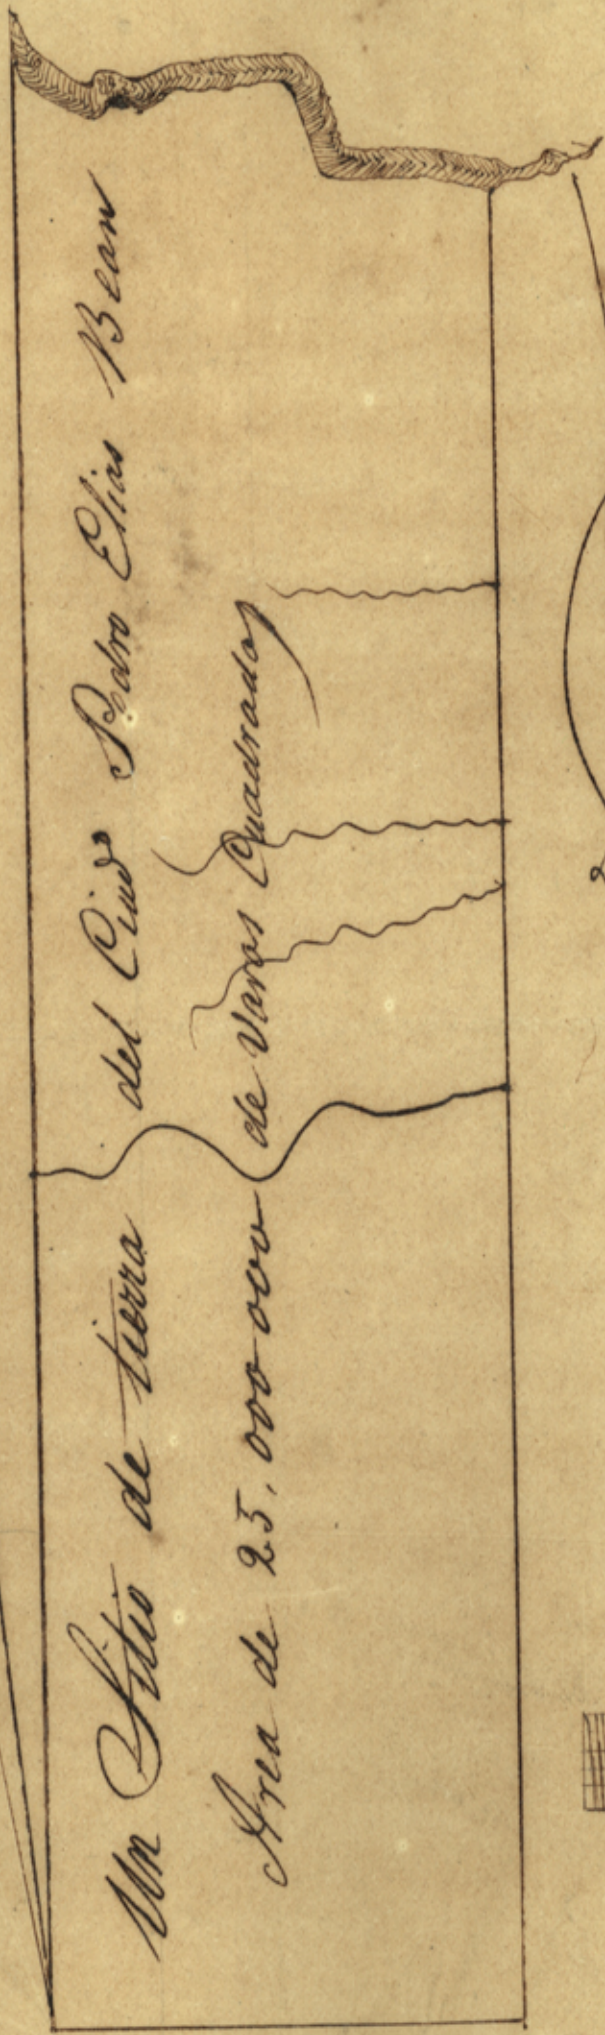 Un Sitio de tierra del Ciudº Pedro Elias Bean
Area de 25,000000 de Varas Quadradas